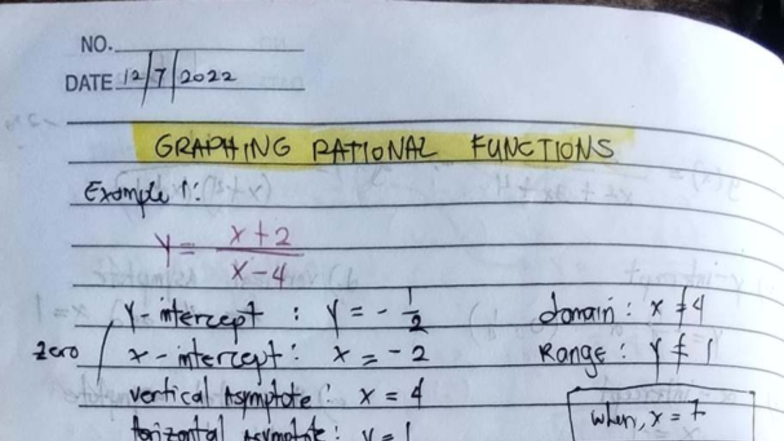 NO.
DATE 12/7/2022
GRAPHING RATIONAL FUNCTIONS
Example 1:
y = x+2 / x-4
y-intercept : y = -1/2
domain : x ≠ 4
zero / x-intercept : x = -2
Range : y ≠ 1
vertical Asymptote : x = 4
when, x =
horizontal asymptote : y = 1